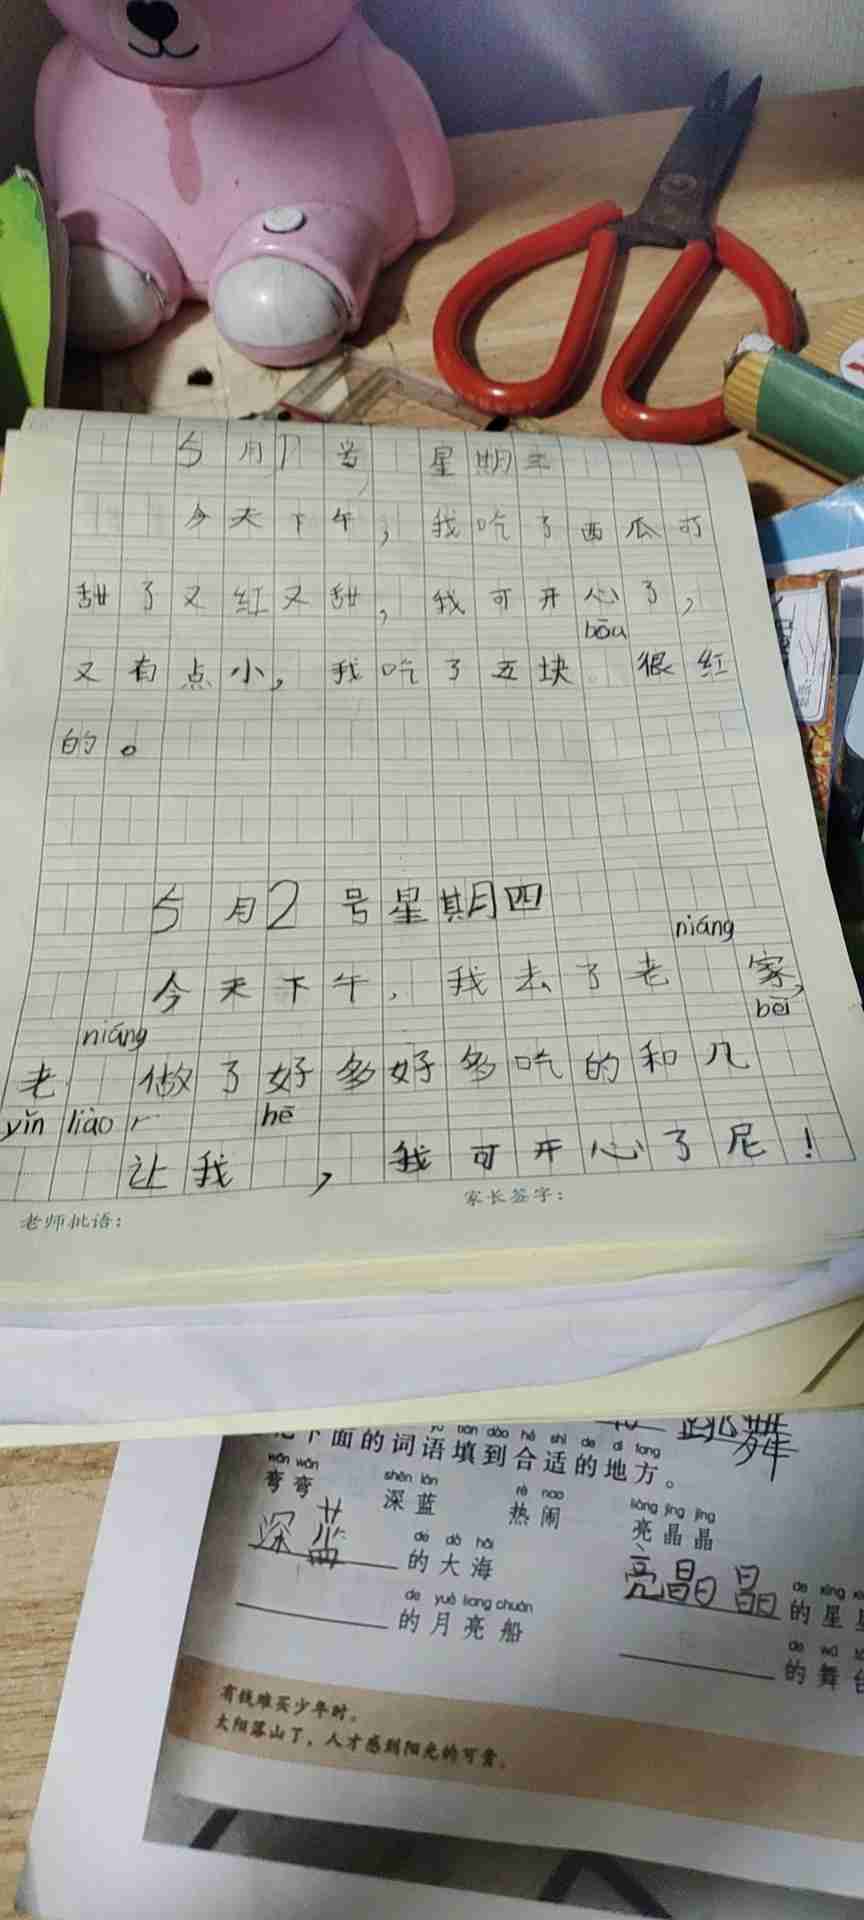 5月1号 星期三
今天下午，我吃了西瓜可
甜了又红又甜，我可开心了，
bōu
又有点小，我吃了五块。很红
的。
5月2号星期四
niáng
今天下午，我去了老 家，
niáng
bēi
老 做了好多好多吃的和几
yǐn liào hē
让我 ，我可开心了尼！
老师批语：
家长签字：
跳舞
下面的词语填到合适的地方。
wān wān shēn lán rè nao liàng jīng jīng
弯弯 深蓝 热闹 亮晶晶
de dà hǎi
深蓝的大海
亮晶晶的星
de yuè liang chuán
的月亮船
的舞台
有钱难买少年时。
太阳落山了，人才感到阳光的可贵。